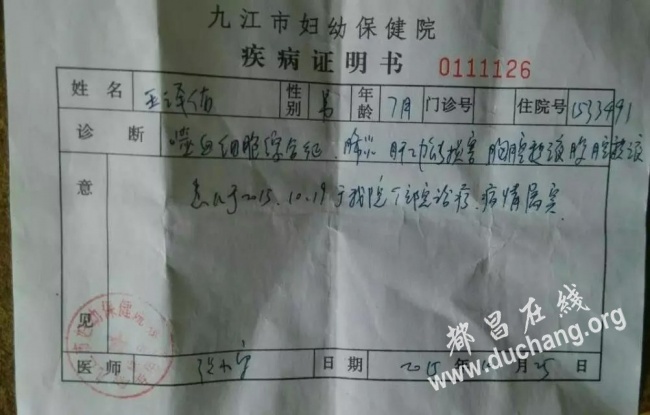 九江市妇幼保健院
疾病证明书 0111126
姓名 王泽佑 性别 男 年龄 7月 门诊号 住院号 1533491
诊断 噬血细胞综合征、肺炎 肝功能损害 胸腔积液 腹腔积液
意见 患儿于2015.10.19于我院住院诊疗.病情属实.
医师 日期 2015年 月25日
都昌在线
www.duchang.org